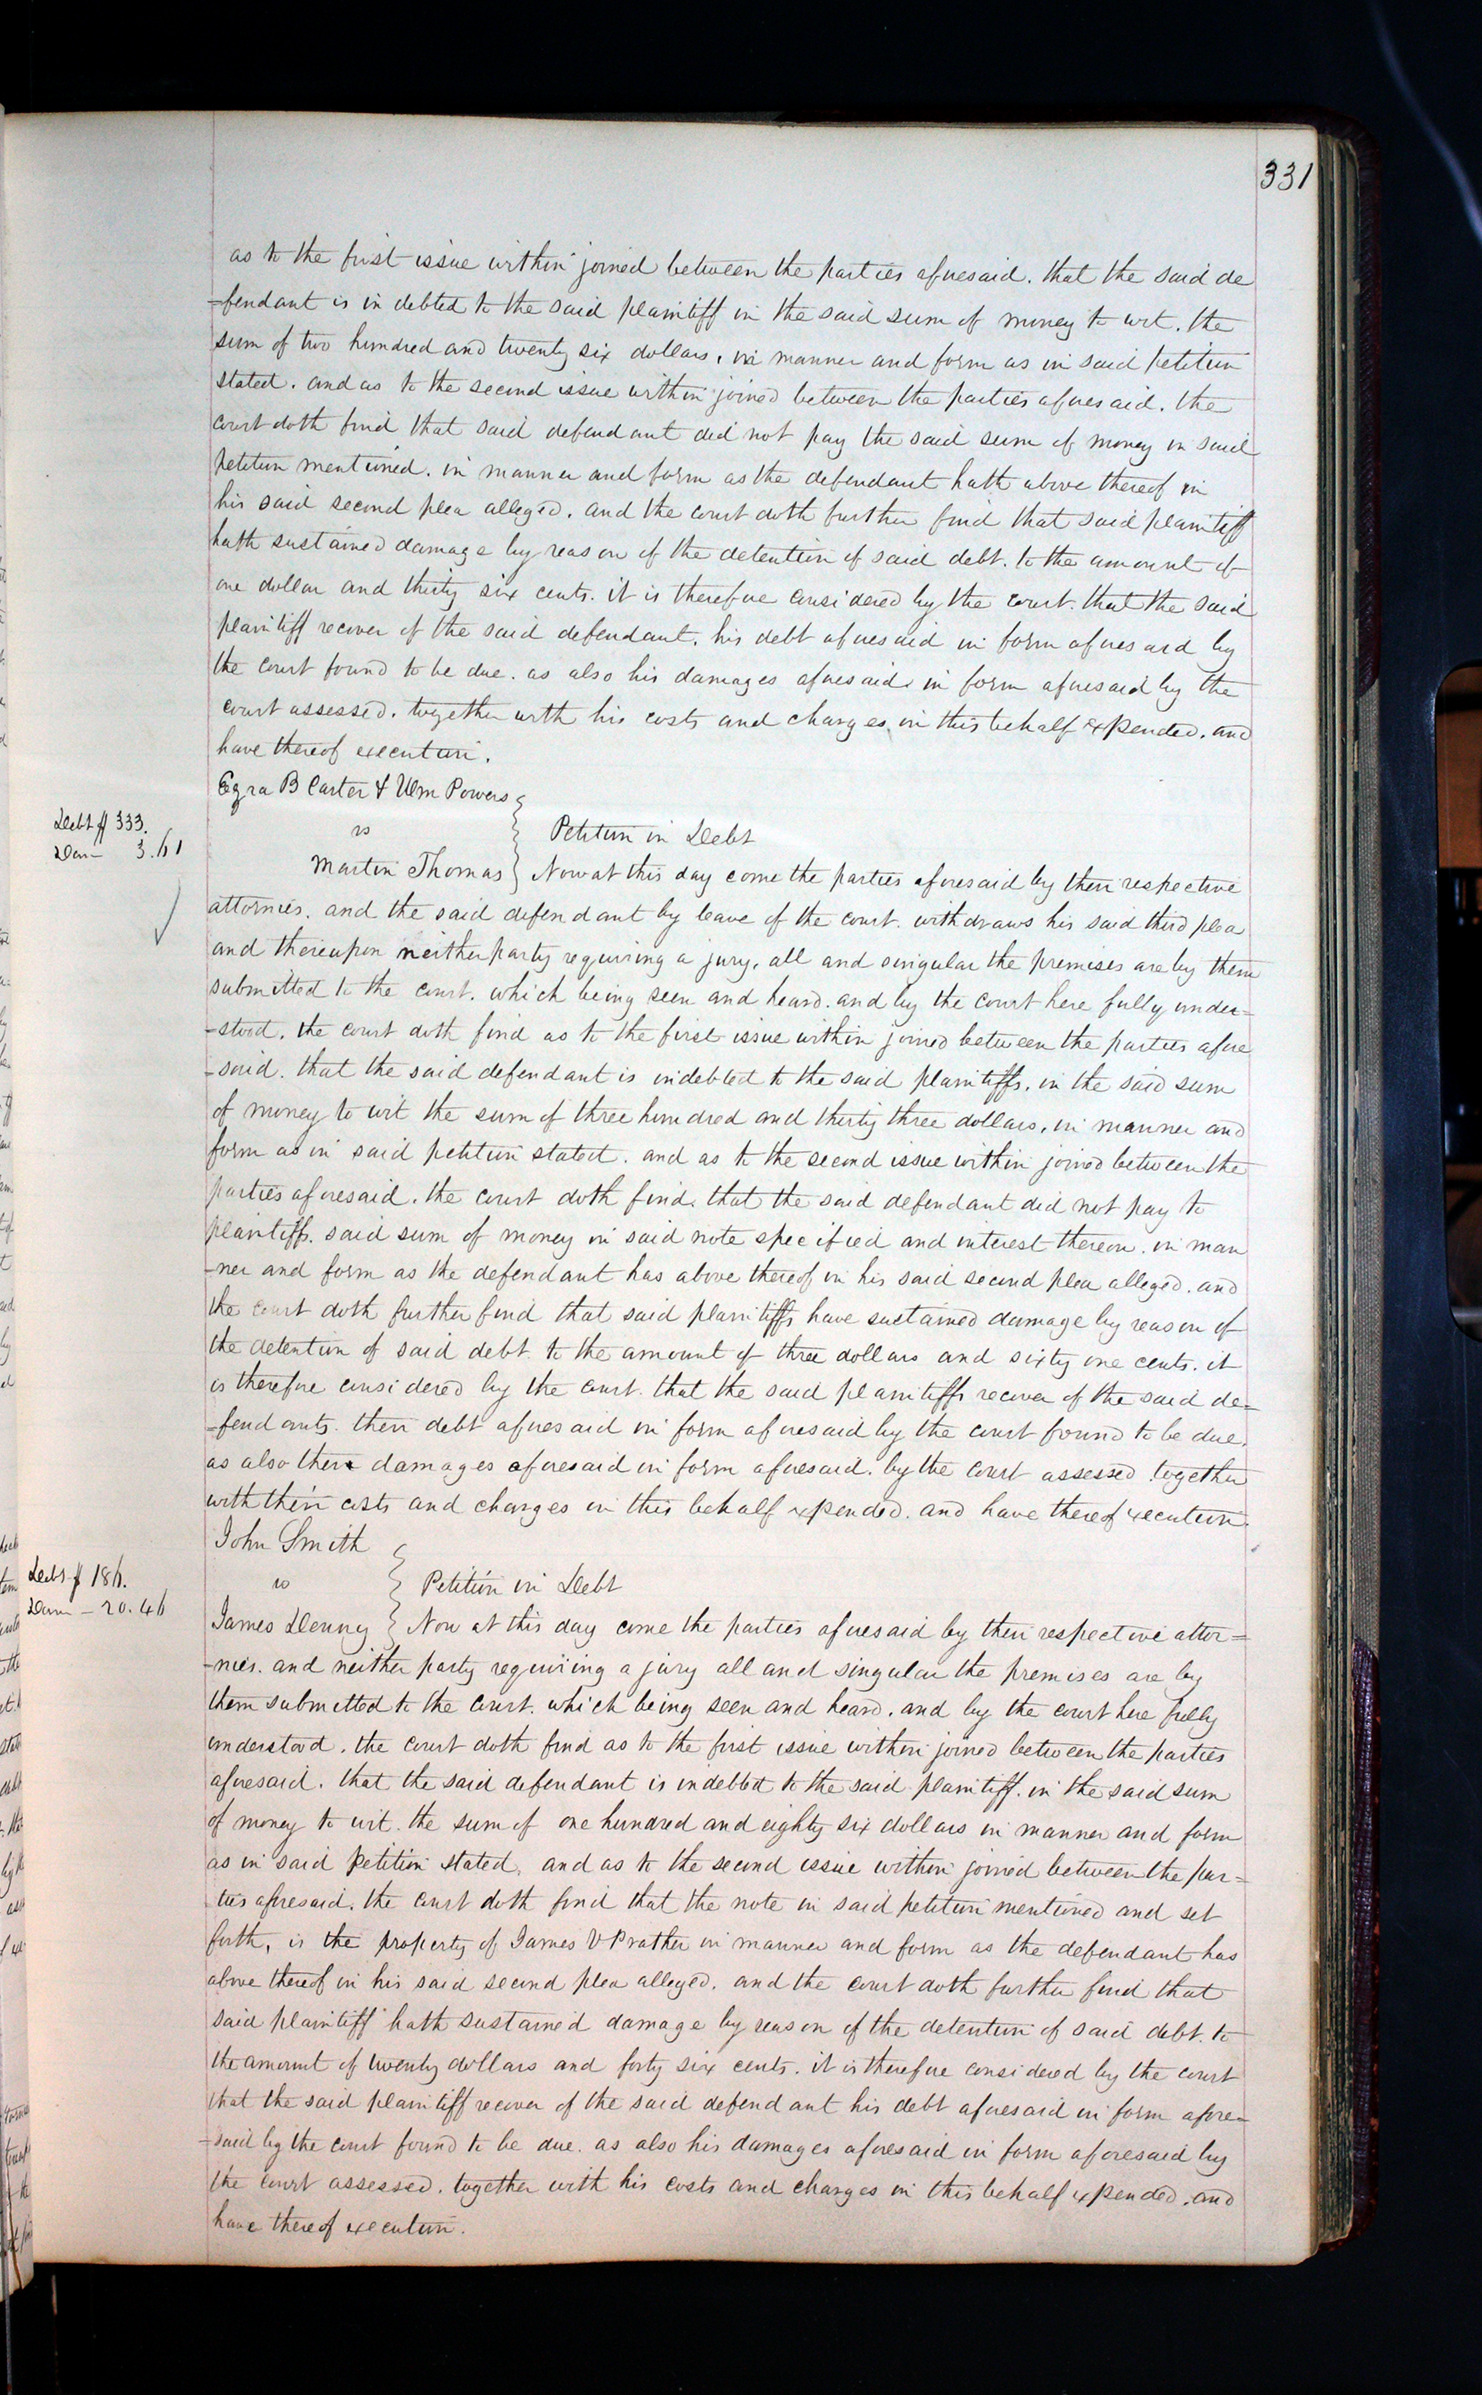 331
as to the first issue within joined between the parties aforesaid. that the said de
-fendant is in debted to the said plaintiff in the said sum of money to wit. the
sum of two hundred and twenty six dollars, in manner and form as in said petition
stated. and as to the second issue within joined between the parties aforesaid. the
court doth find that said defendant did not pay the said sum of money in said
petition mentioned. in manner and form as the defendant hath above thereof in
his said second plea alleged. and the court doth further find that said plaintiff
hath sustained damage by reason of the detention of said debt. to the amount of
one dollar and thirty six cents. it is therefore considered by the court. that the said
plaintiff recover of the said defendant. his debt aforesaid in form aforesaid by
the court found to be due. as also his damages aforesaid in form aforesaid by the
court assessed. together with his costs and charges in this behalf expended. and
have thereof execution.
Ezra B Carter & Wm Powers
Debt $ 333.
vs
Petition in Debt
Dam 3.61
Martin Thomas } Now at this day come the parties aforesaid by their respective
attornies. and the said defendant by leave of the court. withdraws his said third plea
and thereupon neither party requiring a jury, all and singular the premises are by them
submitted to the court. which being seen and heard. and by the court here fully under=
-stood. the court doth find as to the first issue within joined between the parties afore
-said. that the said defendant is indebted to the said plaintiffs. in the said sum
of money to wit the sum of three hundred and thirty three dollars, in manner and
form as in said petition stated. and as to the second issue within joined between the
parties aforesaid. the court doth find. that the said defendant did not pay to
plaintiffs. said sum of money in said note specified and interest thereon. in man
-ner and form as the defendant has above thereof in his said second plea alleged. and
the court doth further find that said plaintiffs have sustained damage by reason of
the detention of said debt. to the amount of three dollars and sixty one cents. it
is therefore considered by the court. that the said plaintiffs recover of the said de=
=fendants. their debt aforesaid in form aforesaid by the court found to be due.
as also their damages aforesaid in form aforesaid. by the court assessed. together
with their costs and charges in this behalf expended. and have thereof execution.
John Smith
Debt $ 186.
vs
Petition in Debt
Dam - 20.46
James Denny } Now at this day come the parties aforesaid by their respective attor=
-nies. and neither party requiring a jury all and singular the premises are by
them submitted to the court. which being seen and heard. and by the court here fully
understood. the court doth find as to the first issue within joined between the parties
aforesaid. that the said defendant is indebted to the said plaintiff. in the said sum
of money to wit. the sum of one hundred and eighty six dollars in manner and form
as in said petition stated. and as to the second issue within joined between the par=
-ties aforesaid. the court doth find that the note in said petition mentioned and set
forth, is the property of James V Prather in manner and form as the defendant has
above thereof in his said second plea alleged. and the court doth further find that
said plaintiff hath sustained damage by reason of the detention of said debt. to
the amount of twenty dollars and forty six cents. it is therefore considered by the court
that the said plaintiff recover of the said defendant his debt aforesaid in form afore=
-said by the court found to be due. as also his damages aforesaid in form aforesaid by
the court assessed. together with his costs and charges in this behalf expended. and
have thereof execution.